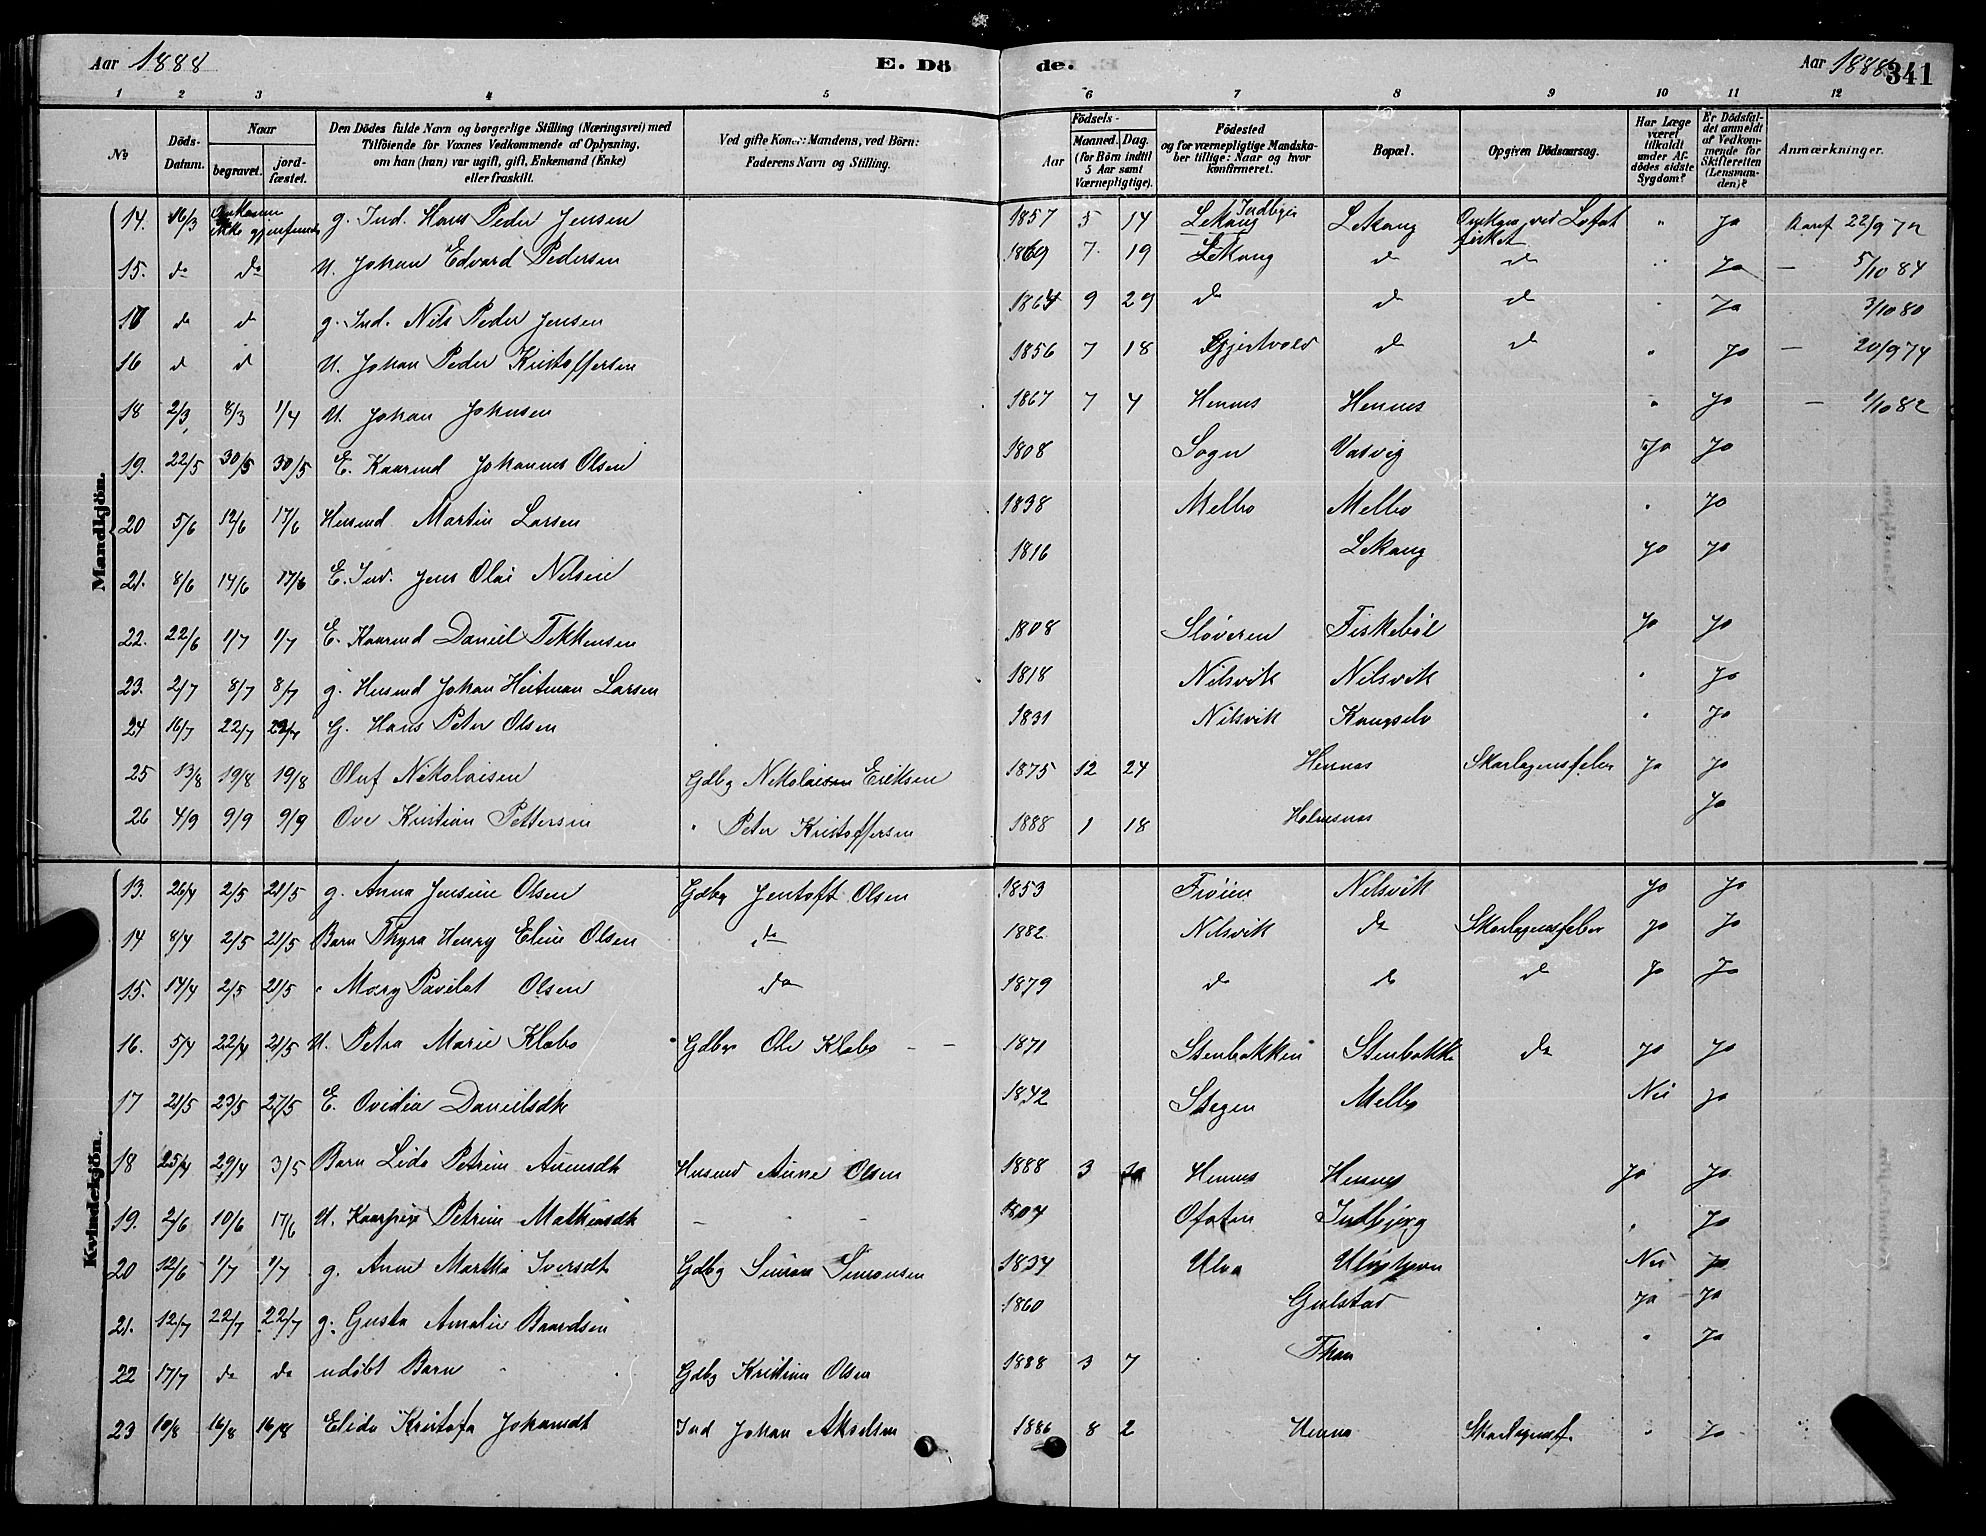 Aar 1888 E. Dö de. Aar 1888 341
1 2 3 4 5 6 7 8 9 10 11 12
No Döds-Datum. Naar begravet. jord-fæstet. Den Dödes fulde Navn og borgerlige Stilling (Næringsvei) med Tilföiende for Voxnes Vedkommende af Oplysning, om han (hun) var ugift, gift, Enkemand (Enke) eller fraskilt. Ved gifte Koner: Mandens, ved Börn: Faderens Navn og Stilling. Födsels- Aar Maaned. Dag. (for Börn indtil 5 Aar samt Værnepligtige). Födested og for værnepligtige Mandskaber tillige: Naar og hvor konfirmeret. Bopæl. Opgiven Dödsaarsag. Har Læge været tilkaldt under Afdödes sidste Sygdom? Er Dödsfaldet anmeldt af Vedkommende for Skifteretten (Lensmanden)? Anmærkninger.
Mandkjön.
14. 16/3 Omkomne ikke gjenfundne g. Ind. Hans Peder Jensen 1857 5 14 Lekang Lekang Omkom ved Lofotfisket " Ja 22/9 72
15. do do U. Johan Edvard Pedersen 1869 7 19 Lekang do do " Ja — 5/10 84
17 do do g. Ind. Nils Peder Jensen 1864 9 29 do do do " Ja 3/10 80
16 do do U. Johan Peder Kristoffersen 1856 7 18 do do " Ja — 20/9 74
18 2/3 8/3 1/4 U. Johan Johnsen 1867 7 4 Hennes Hennes " Ja — 1/10 82
19. 22/5 30/5 30/5 E. Kaarmd Johannes Olsen 1808 Sogn Vasvig Ja Ja
20 5/6 12/6 17/6 Husmd. Martin Larsen 1838 Melbo Melbo " Ja
21. 8/6 14/6 17/6 E. Ind. Jens Olai Nilsen 1816 Lekang Ja Ja
22. 22/6 1/7 1/7 E. Kaarmd Daniel Tekkensen 1808 Sløveren Fiskebøl Ja Ja
23. 2/7 8/7 8/7 g. Husmd Johan Heitman Larsen 1818 Nilsvik Nilsvik " Ja
24 16/7 22/7 22/7 G. Hans Peter Olsen 1831 Nilsvik " Ja
25 13/8 19/8 19/8 Oluf Nikolaisen Gdbg Nikolaisen Eriksen 1875 12 24 Hennes Skarlagensfeber Ja Ja
26 4/9 9/9 9/9 Ove Kristian Pettersen " Peter Kristoffersen 1888 1 18 Holmsnes Ja
Kvindekjön.
13. 26/4 2/5 21/5 g. Anna Jensine Olsen Gdbg Jentoft Olsen 1853 Frøien Nilsvik Ja Ja
14 8/4 2/5 21/5 Barn Thyra Henry Eline Olsen do 1882 Nilsvik do Skarlagensfeber Ja Ja
15. 14/4 2/5 21/5 " Mary Olsen do 1879 do do do Ja Ja
16. 5/4 22/4 21/5 U. Petra Marie Klæbo Gdbgr Ole Klæbo 1871 Stenbakken Stenbakk. do Ja Ja
17 21/5 23/5 27/5 E. Ovidia Danielsdt 1842 Stegen Melbo Nei Ja
18 25/4 29/4 3/5 Barn Lida Petrine Aunesdt Husmd Aune Olsen 1888 3 Hennes Hennes Ja Ja
19. 2/6 10/6 17/6 U. Petrine Mathisdt 1804 Ofoten Indbjerg " Ja
20 12/6 1/7 1/7 g. Anne Martha Iversdt Gdbg Simon Simonsen 1834 Ulva Nei Ja
21. 12/7 22/7 22/7 g. Gusta Amalie Baardsen 1860 Gulstad Ja Ja
22 17/7 do do udøbt Barn Gdbg Kristian Olsen 1888 3 7 " Ja
23 10/8 16/8 16/8 Elida Kristofa Johansdt Ind Johan Akselsen 1886 8 2 Hennes Skarlagensf. " Ja